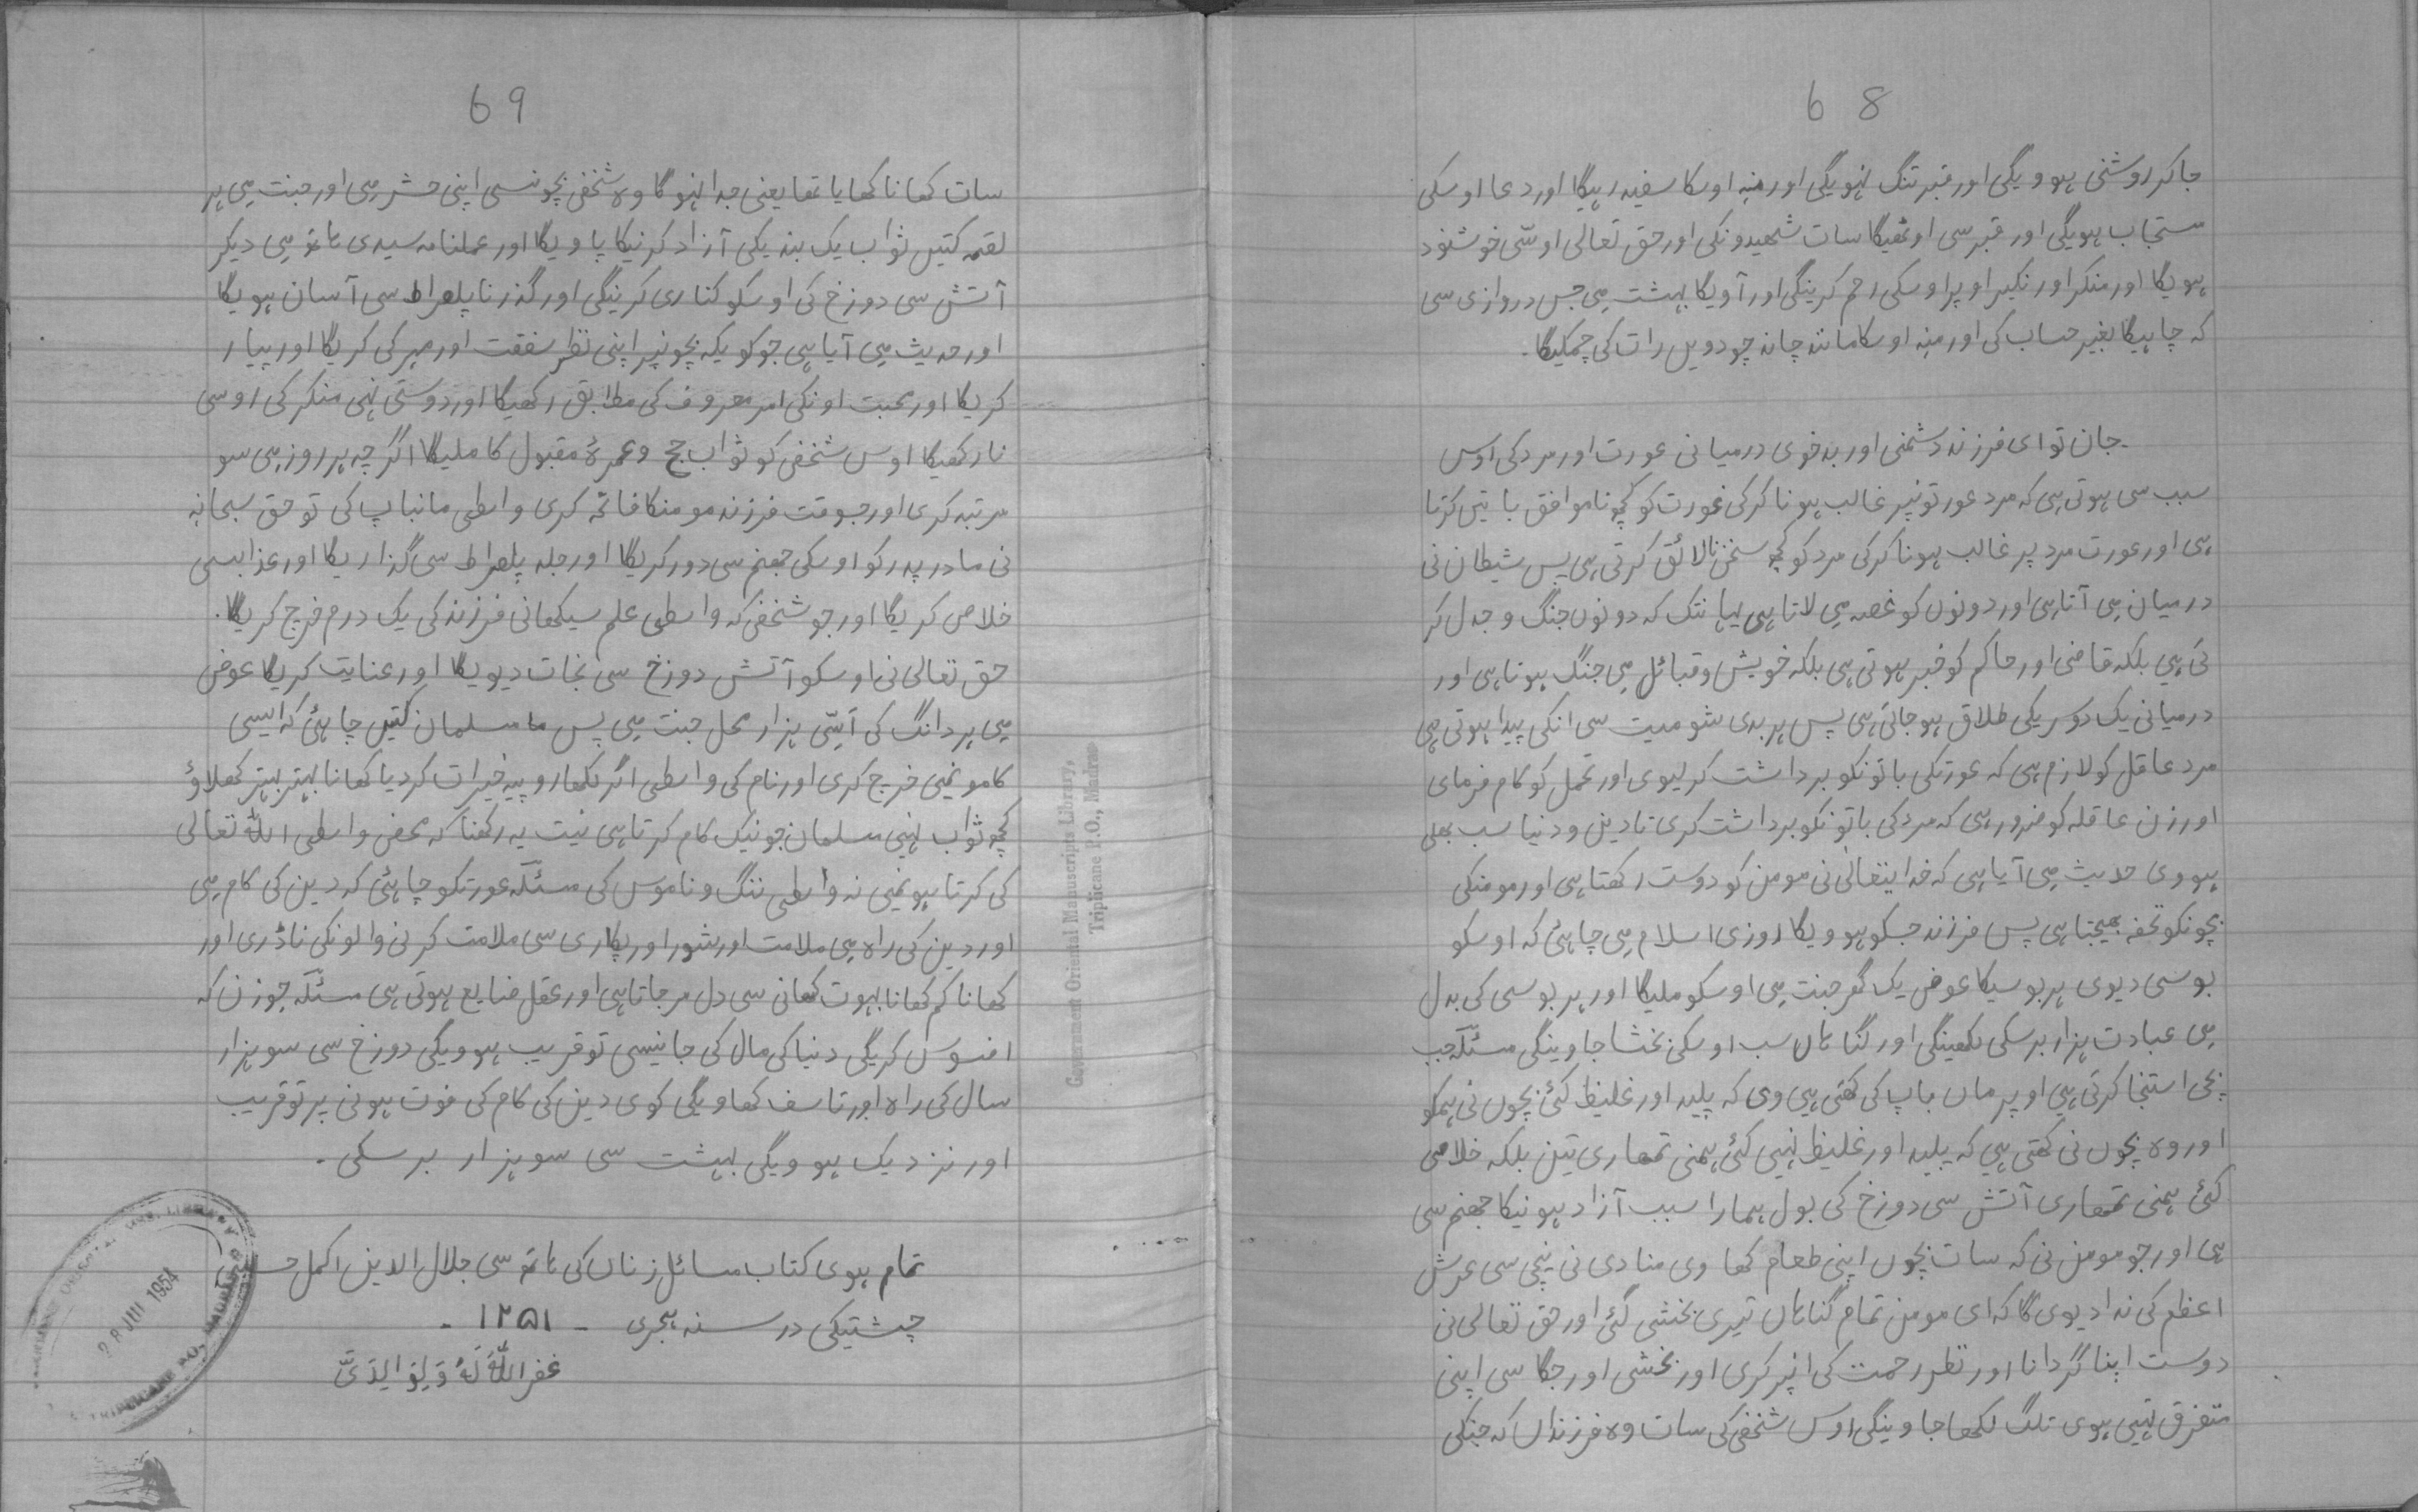 68
جاکر روشنی ہوویگی اور قبر تنگ نہویگی اور منہ اوسکا سفید رہیگا اور دعا اوسکی
مستجاب ہویگی اور قبر سی اوٹھیگا سات شہیدونکی اور حق تعالی اوسّی خوشنود
ہویگا اور منکر اور نکیر اوپر اوسکی رحم کرینگی اور آویگا بہشت میی جس دروازی سی
کہ چاہیگا بغیر حساب کی اور منہ اوسکا مانند چاند چودویں رات کی چمکیگا۔
جان تو ای فرزند دشمنی اور بدخوی درمیانی عورت اور مرد کی اوس
سبب سی ہوتی ہی کہ مرد عورتونپر غالب ہونا کرکی عورت کو کچہ ناموافق باتیں کرتا
ہی اور عورت مرد پر غالب ہونا کرکی مرد کو کچہ سخن نالائق کرتی ہی پس شیطان نی
درمیان میی آتا ہی اور دونوں کو غصہ میی لاتا ہی یہانتک کہ دونوں جنگ و جدل کر
تی ہیی بلکہ قاضی اور حاکم کو خبر ہوتی ہی بلکہ خویش و قبائل میی جنگ ہوتا ہی اور
درمیانی یک دوسریکی طلاق ہوجاتی ہی پس ہر بدی شومیت سی انکی پیدا ہوتی ہی
مرد عاقل کو لازم ہی کہ عورتکی باتونکو برداشت کرلیوی اور تحمل کو کام فرمای
اور زن عاقلہ کو ضرور ہی کہ مرد کی باتونکو برداشت کری تا دین و دنیا سب بھلی
ہووی حدیث میی آیا ہی کہ خدایتعالی نی مومن کو دوست رکھتا ہی اور مومنکی
بچونکو تحفہ بھیجتا ہی پس فرزند جسکو ہوویگا روزی اسلام میی چاہئی کہ اوسکو
بوسی دیوی ہر بوسیکا عوض یک گھر جنت میی اوسکو ملیگا اور ہر بوسی کی بدل
میی عبادت ہزار برسکی لکھینگی اور گناہاں سب اوسکی بخشا جاوینگی مسئلہ جب
بچی استنجا کرتی ہیی اوپر ماں باپ کی کھتی ہیی وی کہ پلید اور غلیظ کئی بچوں نی ہمکو
اور وہ بچوں نی کھتی ہیی کہ پلید اور غلیظ نہیی کئی ہمنی تمھاری تیں بلکہ خلاصی
کئی ہمنی تمھاری آتش سی دوزخ کی بول ہمارا سبب آزاد ہونیکا جھنم سی
ہی اور جو مومن نی کہ سات بچوں اپنی طعام کھاوی منادی نی نیچی سی عرش
اعظم کی ندا دیوی گا کہ ای مومن تمام گناہاں تیری بخشی گئی اور حق تعالی نی
دوست اپنا گردانا اور نظر رحمت کی انپر کری اور بخشی اور جگا سی اپنی
متفرق نہیی ہوی تلگ لکھا جاوینگی اوس شخفی کی سات وہ فرزنداں کہ جنکی
69
سات کھانا کھایا تھا یعنی جدا نہو گا وہ شخفی بچونسی اپنی حشر میی اور جنت میی ہر
لقمہ کتیں ثواب یک بندیکی آزاد کرنیکا پاویگا اور عملنامہ سیدی ہاتہ میی دیکر
آتش سی دوزخ کی اوسکو کناری کرینگی اور گذرنا پلصراط سی آسان ہویگا
اور حدیث میی آیا ہی جو کویکہ بچونپر اپنی نظر شفقت اور مہر کی کریگا اور پیار
کریگا اور محبت اونکی امر معروف کی مطابق رکھیگا اور دوستی نہی منکر کی اوسی
نارکھیگا اوس شخفی کو ثواب حج و عمرۂ مقبول کا ملیگا اگرچہ ہر روز میی سو
مرتبہ کری اور جسوقت فرزند مومنکا فاتحہ کری واسطی ماںباپ کی تو حق سبحانہ
نی مادر پدر کو اوسکی جھنم سی دور کریگا اور جلد پلصراط سی گذاریگا اور عذابسی
خلاص کریگا اور جو شخفی کہ واسطی علم سیکھانی فرزند کی یک درم خرچ کریگا۔
حق تعالی نی اوسکو آتش دوزخ سی نجات دیویگا اور عنایت کریگا عوض
میی ہر دانگ کی اَسّی ہزار محل جنت میی پس مسلمان کتیں چاہئی کہ ایسی
کامونمیی خرچ کری اور نام کی واسطی اگر لکھا روپیہ خیرات کردیا کھانا بہتر بہتر کھلاؤ
کچہ ثواب نہیی مسلمان جو نیک کام کرتا ہی نیت یہ رکھنا کہ محض واسطی اللہ تعالی
کی کرتا ہونمیی نہ واسطی ننگ و ناموس کی مسئلہ عورتکو چاہئی کہ دین کی کام میی
اور دین کی راہ میی ملامت اور شور اور پکاری سی ملامت کرنی والونکی ناڈری اور
کھانا کم کھانا بہوت کھانی سی دل مرجاتا ہی اور عقل ضایع ہوتی ہی مسئلہ جو زن کہ
افسوس کریگی دنیا کی مال کی جانیسی تو قریب ہوویگی دوزخ سی سو ہزار
سال کی راہ اور تاسف کھاویگی کوی دین کی کام کی فوت ہونی پر تو قریب
اور نزدیک ہوویگی بہشت سی سو ہزار برسکی۔
تمام ہوی کتاب مسائل زناں کی ہاتہ سی جلال الدین اکمل
چشتیکی در سنہ ہجری ۔ ۱۲۵۱ ۔
غفر اللّٰہ لَہُ وَلِوَالِدَیَّ
Government Oriental Manuscripts Library,
Triplicane P.O., Madras
JUL 1954